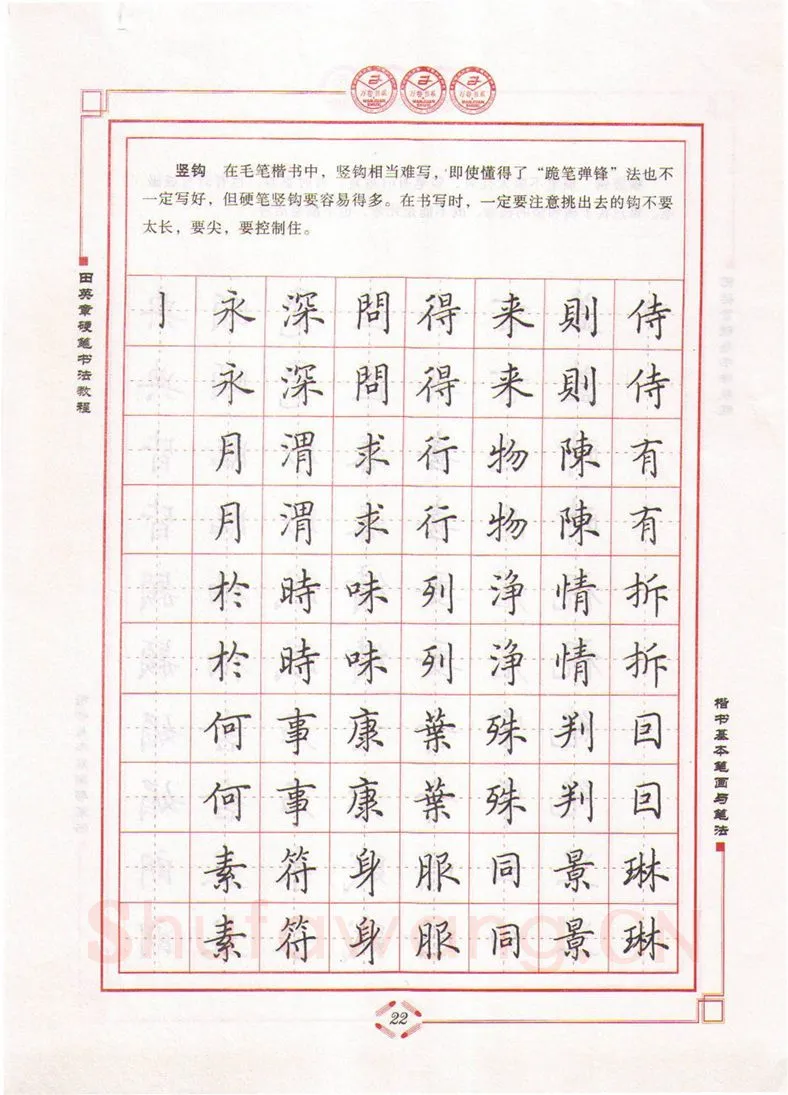 万卷书系 万卷书系 万卷书系
WANJUAN WANJUAN WANJUAN
SHUXI SHUXI SHUXI
竖钩 在毛笔楷书中，竖钩相当难写，即使懂得了“跪笔弹锋”法也不
一定写好，但硬笔竖钩要容易得多。在书写时，一定要注意挑出去的钩不要
太长，要尖，要控制住。
田英章硬笔书法教程
亅永深問得来則侍
永深問得来則侍
月渭求行物陳有
月渭求行物陳有
於時味列淨情拆
於時味列淨情拆
何事康葉殊判回
何事康葉殊判回
素符身服同景琳
素符身服同景琳
楷书基本笔画与笔法
Shufawang.CN
22